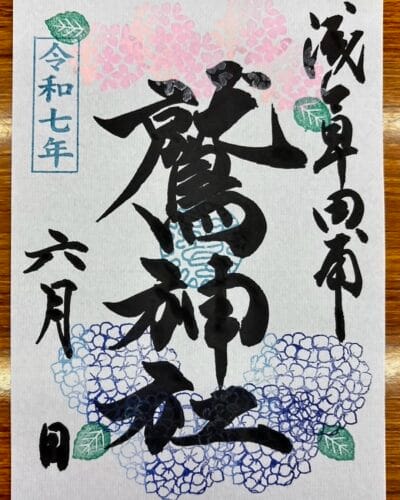 浅草田甫
鷲神社
令和七年
六月 日